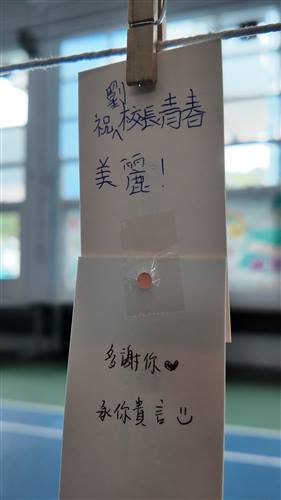 祝劉校長青春
美麗！
多謝你♥
承你貴言☺